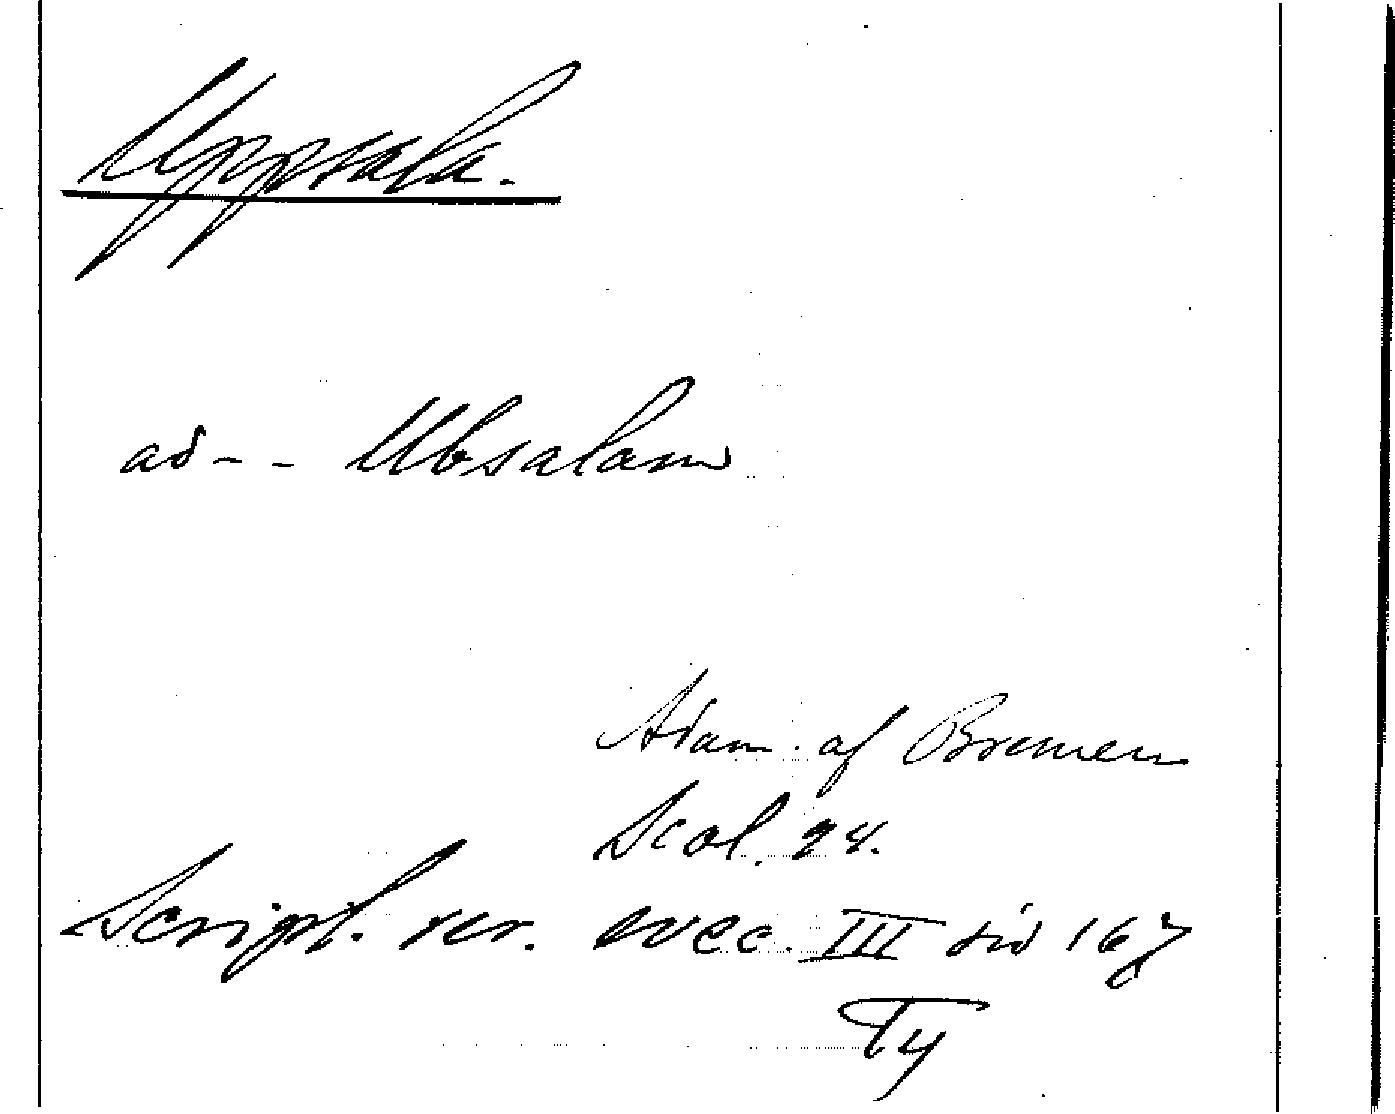 Uppsala.
ad - - Ubsalam
Adam af Bremen
Scol. 94.
Script. rer. svec. III sid 167
Ty